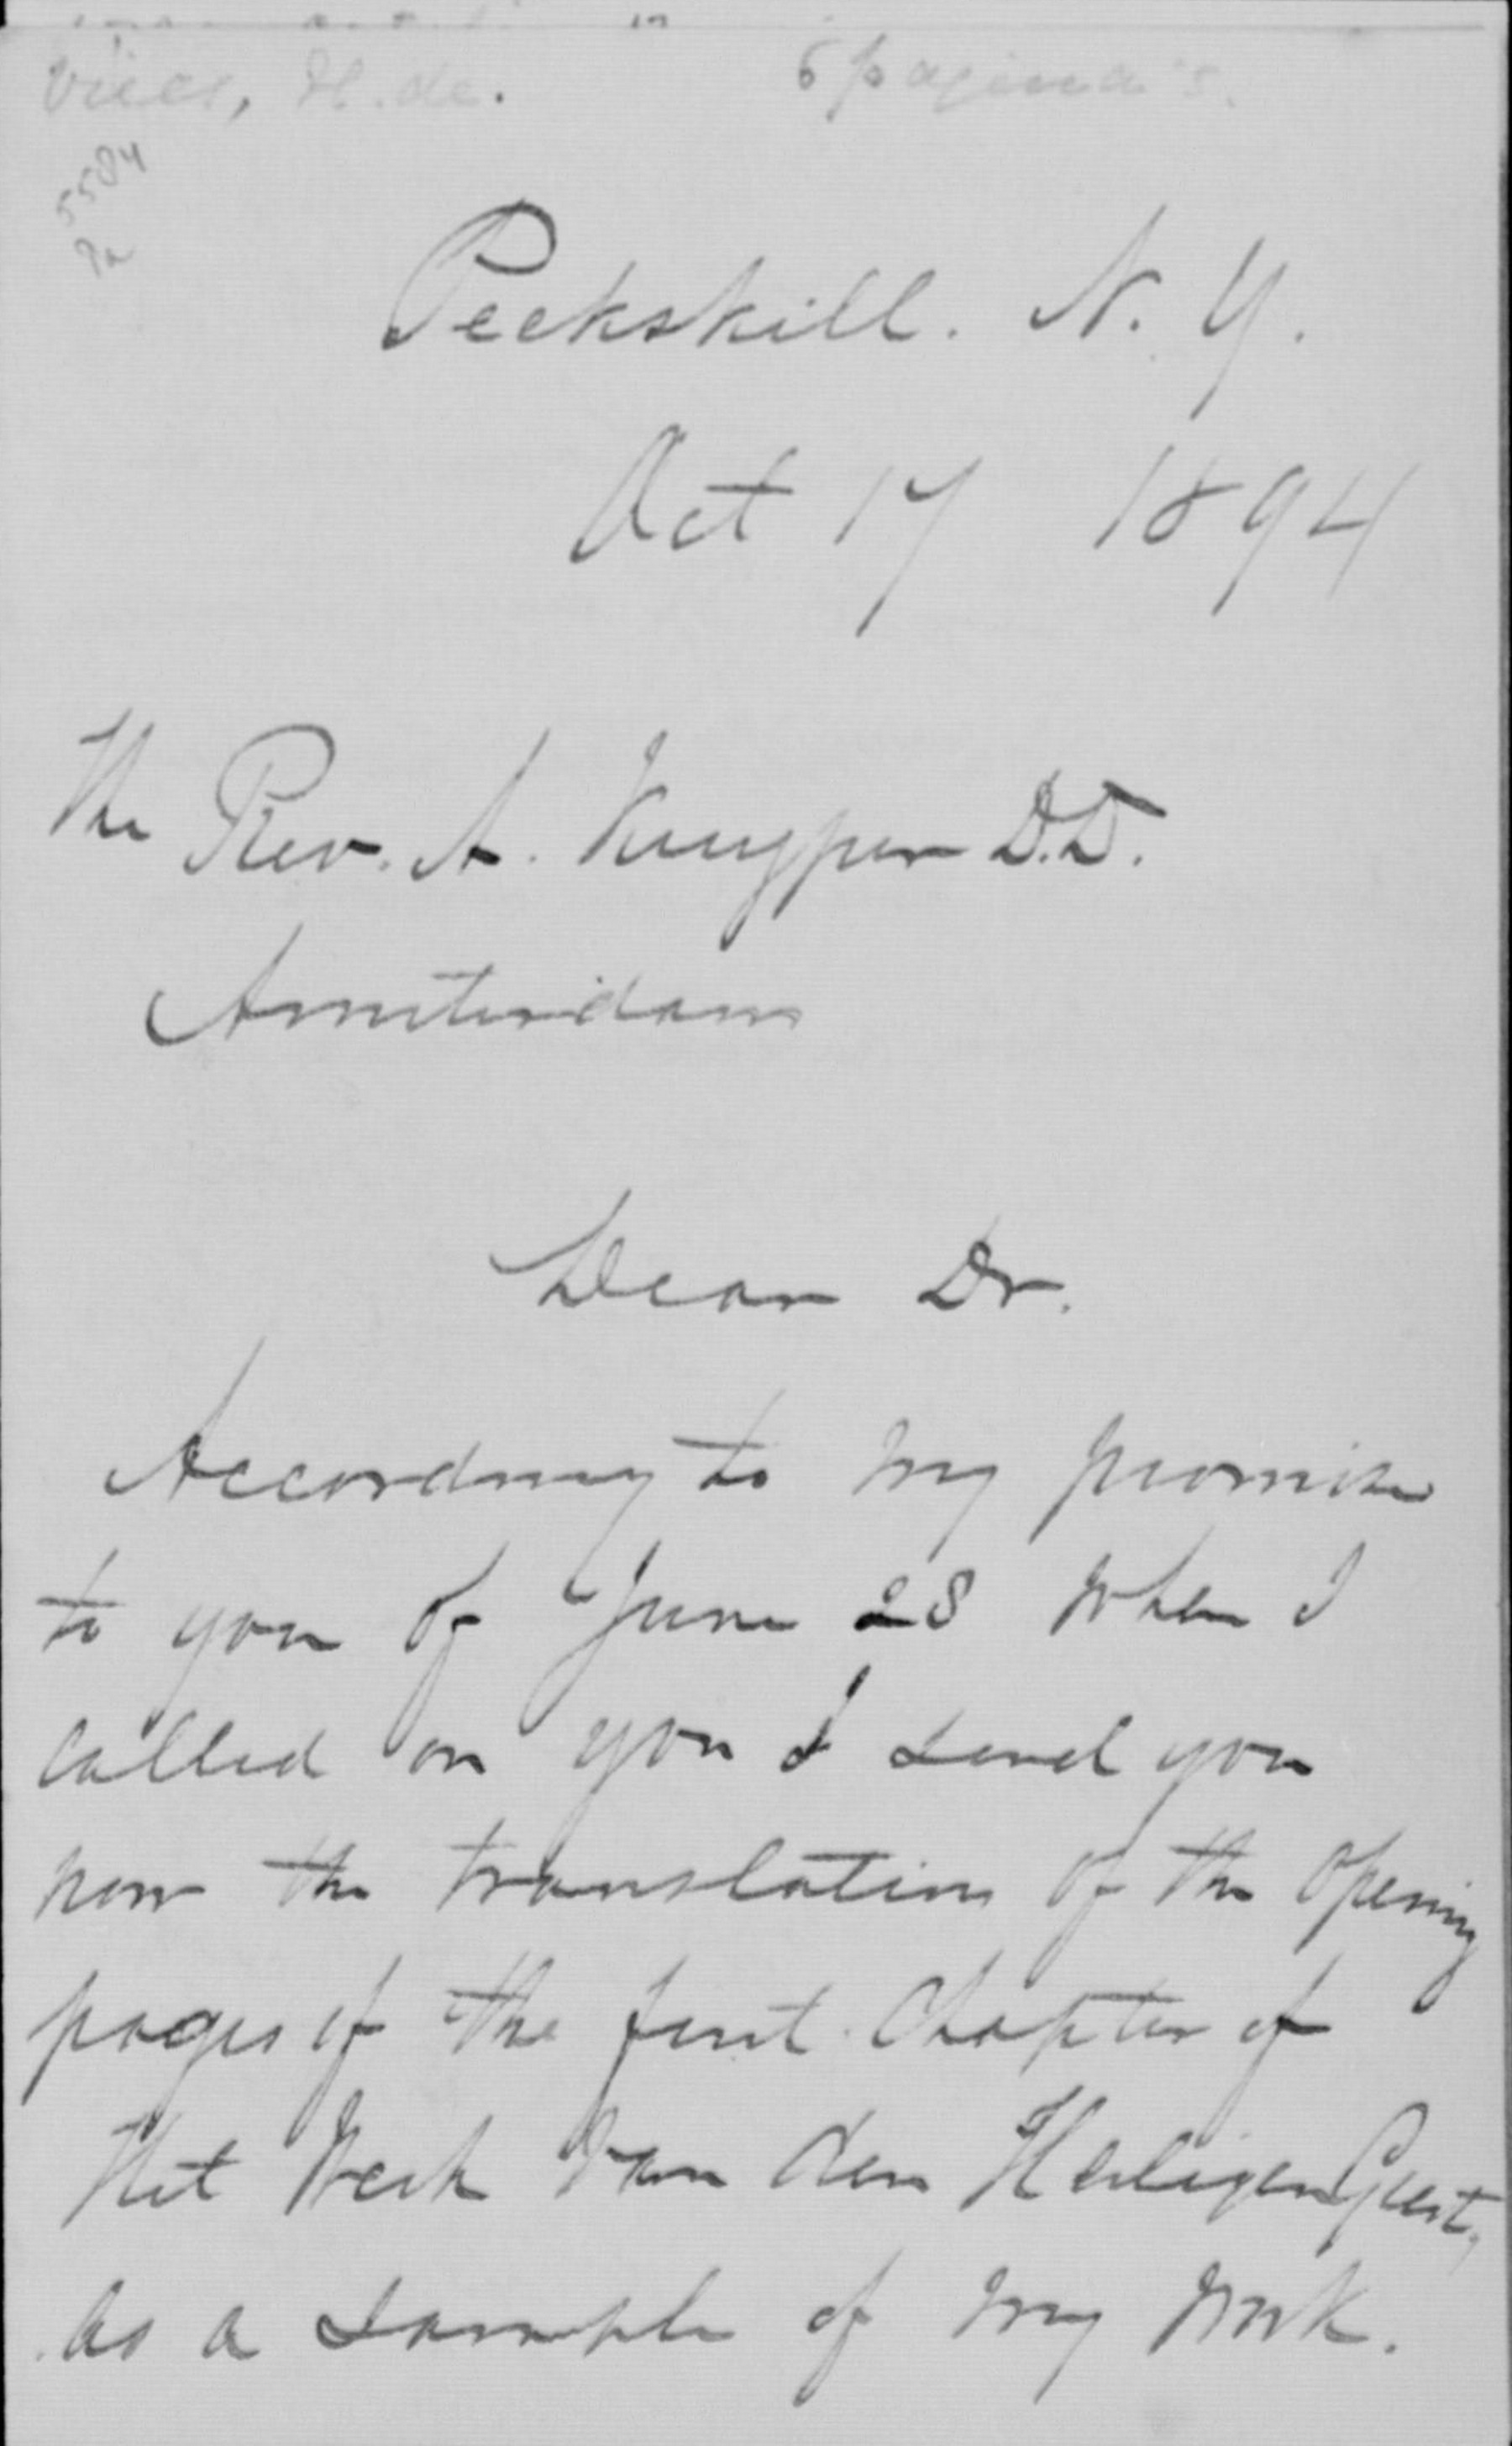 Vries, H. de.
6 pagina's.
5584
Peekskill. N. Y.
Oct 17 1894
The Rev. A. Kuyper D.D.
Amsterdam
Dear Dr.
According to my promise
to you of June 28 when I
called on you I send you
now the translation of the opening
pages of the first Chapter of
Het Werk van den Heiligen Geest,
as a sample of my work.